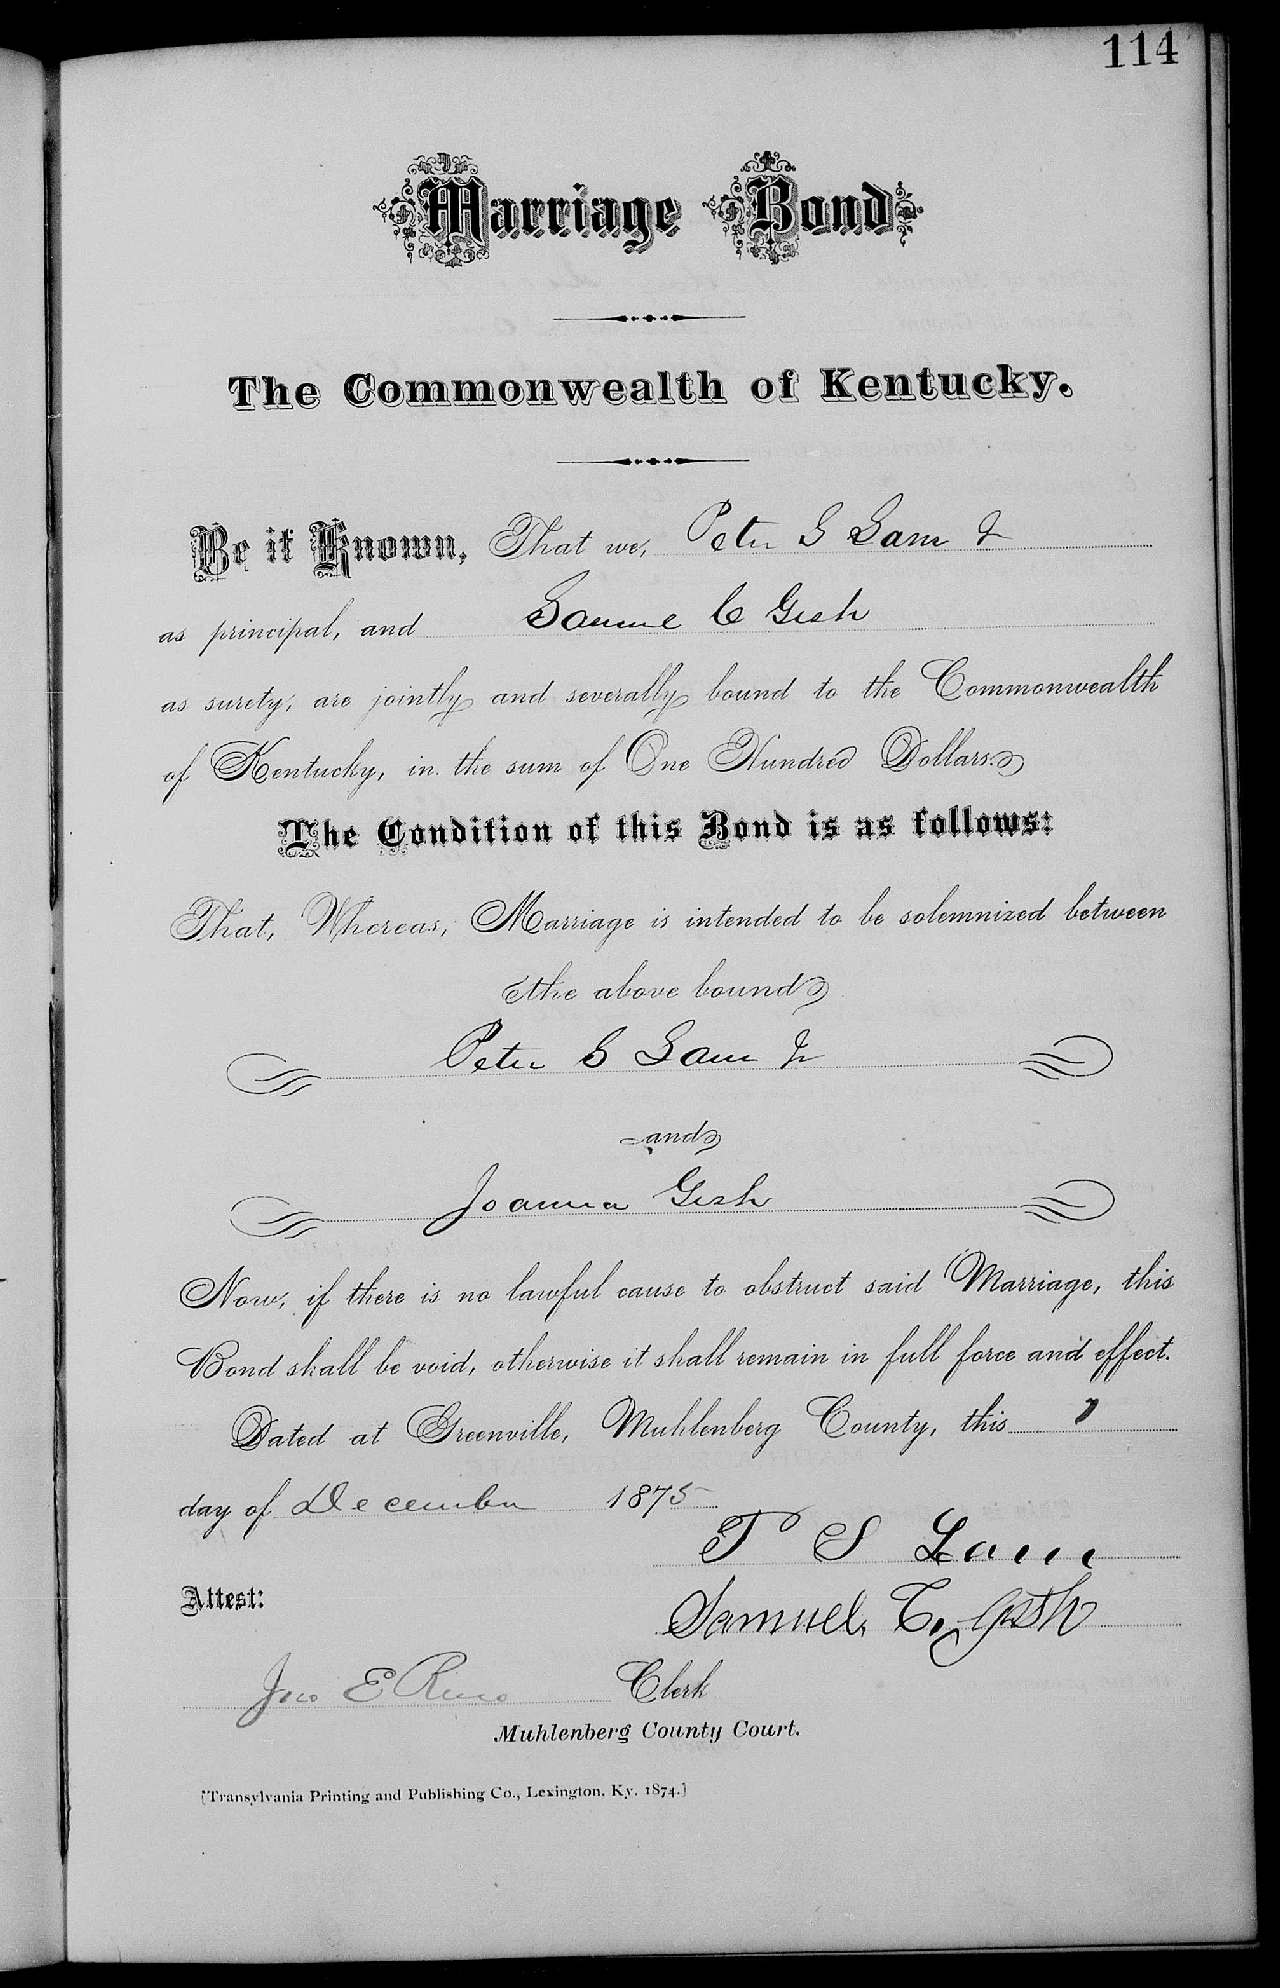 114
Marriage Bond
The Commonwealth of Kentucky.
Be it Known, That we, Peter S Lam Jr
as principal, and Samuel C Gish
as surety, are jointly and severally bound to the Commonwealth
of Kentucky, in the sum of One Hundred Dollars.
The Condition of this Bond is as follows:
That, Whereas, Marriage is intended to be solemnized between
the above bound
Peter S Lam Jr
and
Joanna Gish
Now, if there is no lawful cause to obstruct said Marriage, this
Bond shall be void, otherwise it shall remain in full force and effect.
Dated at Greenville, Muhlenberg County, this 7
day of December 1875
P S Lam
Attest:
Samuel C. Gish
Jno E Reno Clerk
Muhlenberg County Court.
[Transylvania Printing and Publishing Co., Lexington, Ky. 1874.]